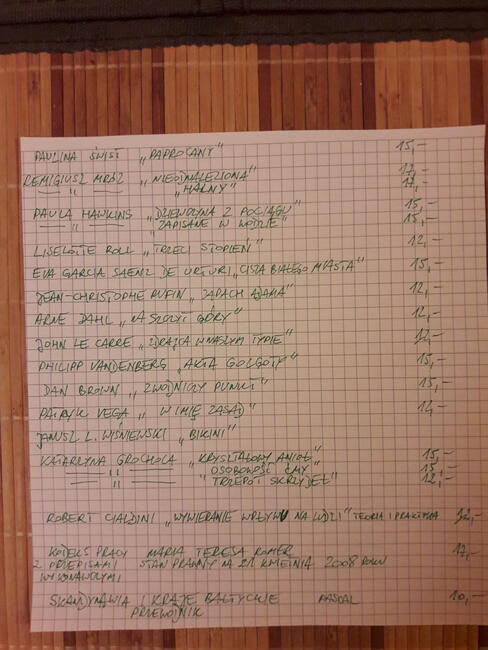 PAULINA ŚWIST „PAPROCANY" 15,-
REMIGIUSZ MRÓZ „NIEODNALEZIONA" 17,-
— " — „HALNY" 17,-
PAULA HAWKINS „DZIEWCZYNA Z POCIĄGU" 15,-
— " — „ZAPISANE W WODZIE" 15,-
LISELOTTE ROLL „TRZECI STOPIEŃ" 12,-
EVA GARCIA SAENZ DE URTURI „CISZA BIAŁEGO MIASTA" 15,-
JEAN-CHRISTOPHE RUFIN „ZAPACH ADAMA" 12,-
ARNE DAHL „NA SZCZYT GÓRY" 12,-
JOHN LE CARRE „ZDRAJCA W NASZYM TYPIE" 12,-
PHILIPP VANDENBERG „AKTA GOLGOTY" 15,-
DAN BROWN „ZWODNICZY PUNKT" 15,-
PATRYK VEGA „W IMIĘ ZASAD" 12,-
JANUSZ L. WIŚNIEWSKI „BIKINI"
KATARZYNA GROCHOLA „KRYSZTAŁOWY ANIOŁ" 15,-
— " — „OSOBOWOŚĆ ĆMY" 15,-
— " — „TRZEPOT SKRZYDEŁ" 12,-
ROBERT CIALDINI „WYWIERANIE WPŁYWU NA LUDZI" TEORIA I PRAKTYKA 12,-
KODEKS PRACY MARIA TERESA ROMER 17,-
Z PRZEPISAMI STAN PRAWNY NA 21 KWIETNIA 2008 ROKU
WYKONAWCZYMI
SKANDYNAWIA I KRAJE BAŁTYCKIE PASCAL 10,-
PRZEWODNIK